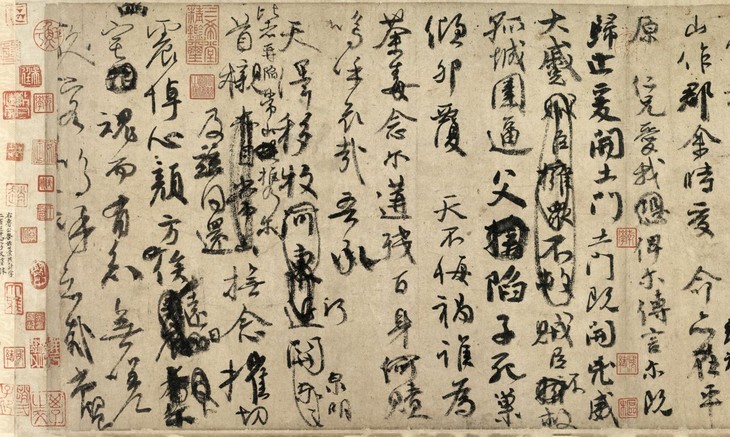 山作郡余時受 命亦在平
原 仁兄愛我 俾爾傳言爾既
歸止爰開土門土門既開兇威
大蹙賊臣擁眾不救賊臣不救
孤城圍逼父陷子死巢
傾卵覆 天不悔禍誰為
荼毒念爾遘殘百身何贖
嗚呼哀哉吾承
天澤移牧河關 泉明
比者再陷常山攜爾
首櫬及茲同還撫念摧切
震悼心顏方俟遠日
宅魂而有知無嗟
久客嗚呼哀哉尚饗